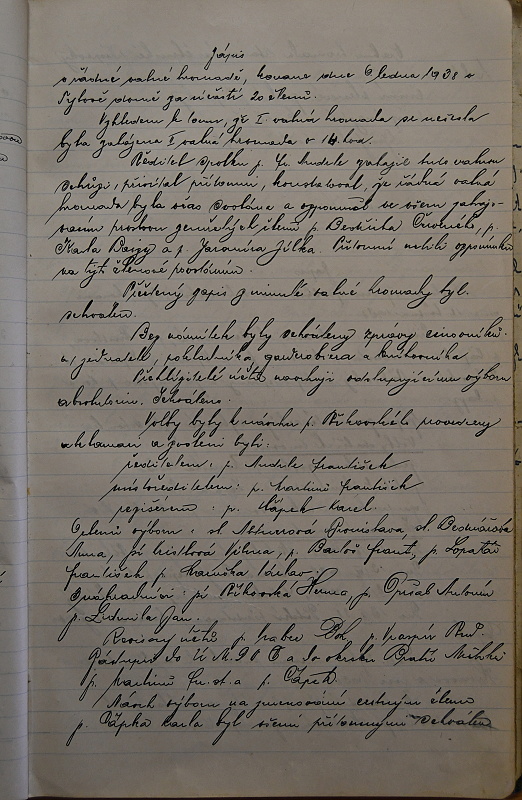 Zápis
o řádné valné hromadě, konané dne 6 ledna 1938 v
Tylově domě za účasti 20 členů.
Vzhledem k tomu, že I. valná hromada se nesešla
byla zahájena II valná hromada o 14 hod.
Ředitel spolku p. Fr. Anderle zahájil tuto valnou
schůzi, přivítal přítomné, konstatoval, že řádná valná
hromada byla včas svolána a vzpomněl ve svém zahajo-
vacím proslovu zemřelých členů p. Bedřicha p.
Karla a p. Jaromíra Jílka. Přítomní uctili vzpomínku
na tyto členy povstáním.
Přečtený zápis z minulé valné hromady byl
schválen.
Bez námitek byly schváleny zprávy činovníků
a, jednatele, pokladníka, garderobiéra a knihovníka.
Přehlížitelé účtů navrhují odstupujícímu výboru
absolutorium. Schváleno.
Volby byly k návrhu p. Říhovského provedeny
aklamací a zvoleni byli:
ředitelem: p. Anderle František
místoředitelem: p. Martinů František
režisérem: p. Čápek Karel.
Členové výboru: sl. Bronislava, sl. Bednářová
Anna, pí p. Bartoš Frant, p. Lopatář
František p. Hanuška Václav.
Náhradníci: pí Říhovská Helena, p. Antonín
p. Ludmila Jan.
Revisory účtů p. p. Kašpar Rud.
Zástupci do Ú M. D O Č a do okrsku
p. Martinů Fr. st. a p. Čápek
Návrh výboru na jmenování čestným členem
p. Čápka Karla byl všemi přítomnými schválen